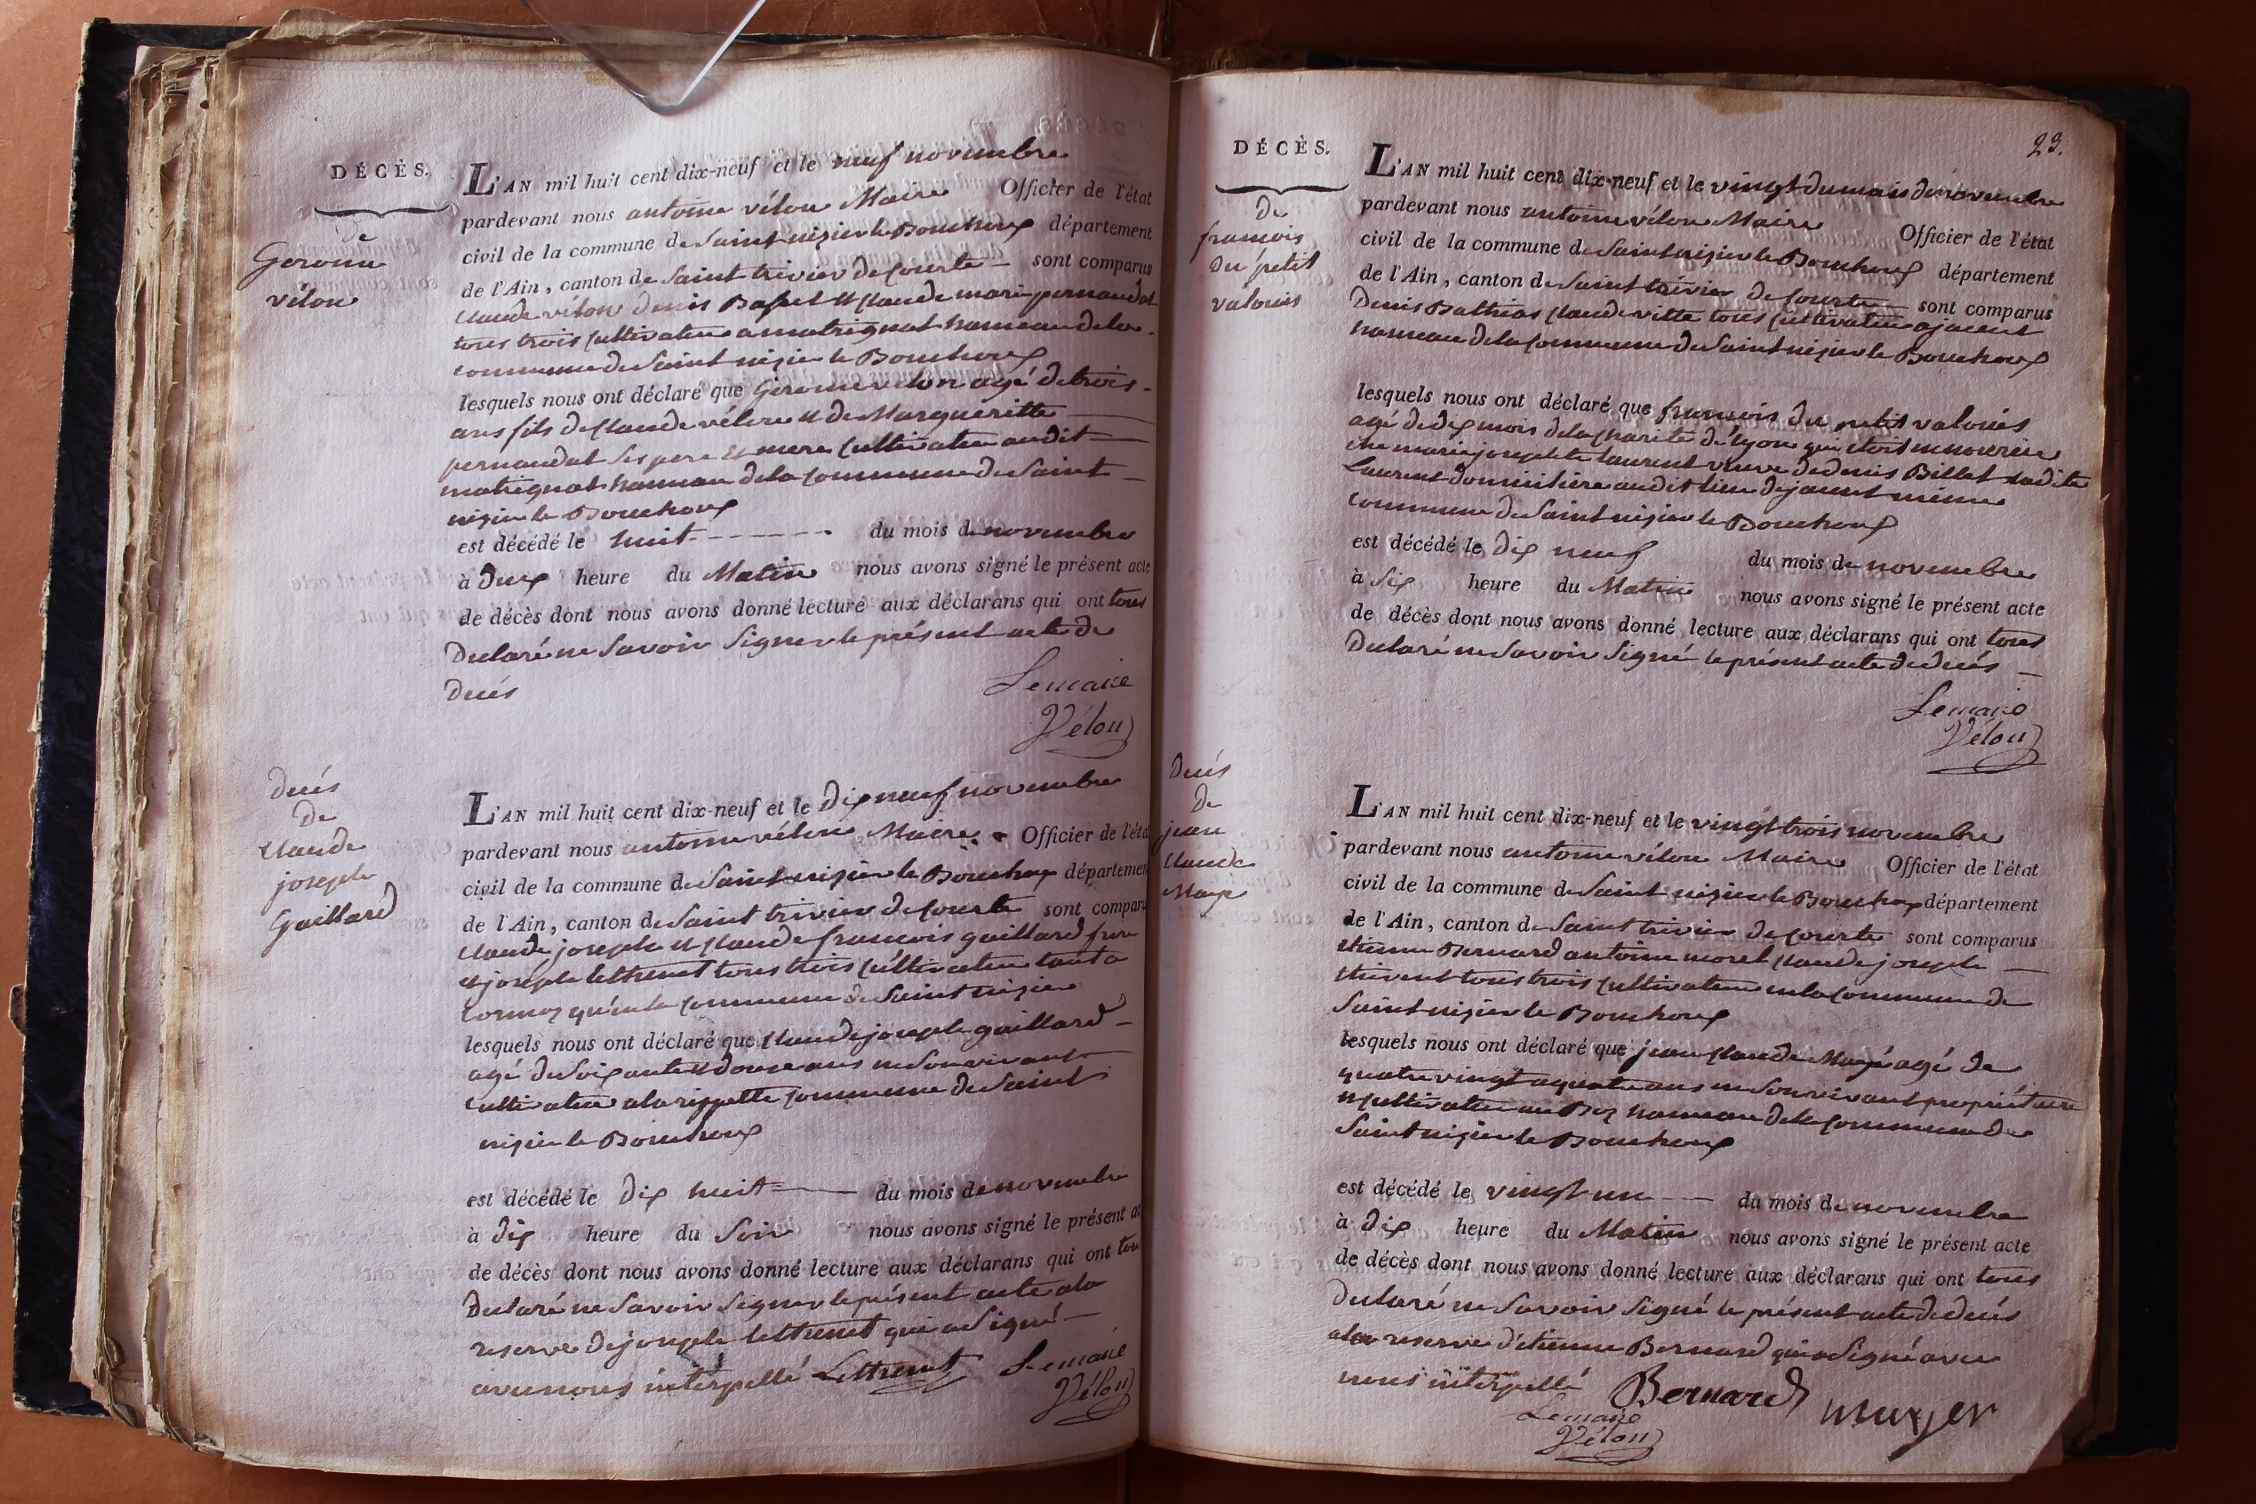 DÉCÈS.
de
Gerome
vélon
L'AN mil huit cent dix-neuf et le neuf novembre
pardevant nous antoine vélon Maire Officier de l'état
civil de la commune de Saint nizier le Bouchoux département
de l'Ain, canton de Saint trivier de Courte sont comparus
Claude vélon denis Ballet et Claude marie pernaudat
tous trois Cultivateur a matrignat hameau dela
commune de Saint nizier le Bouchoux
lesquels nous ont déclaré que Gerome vélon agé de trois
ans fils de Claude vélon et de Margueritte
pernaudat ses pere et mere Cultivateur audit
matrignat hameau dela commune de Saint
nizier le Bouchoux
est décédé le huit du mois de novembre
à deux heure du Matin nous avons signé le présent acte
de décès dont nous avons donné lecture aux déclarans qui ont tous
Declaré ne Savoir Signer le présent acte de
decés
Lemaire
Vélon
decés
De
Claude
joseph
Gaillard
L'AN mil huit cent dix-neuf et le dix neuf novembre
pardevant nous antoine vélon Maire Officier de l'éta
civil de la commune de Saint nizier le Bouchoux départemen
de l'Ain, canton de Saint trivier de Courte sont compar
Claude joseph et Claude francois gaillard frere
et joseph lethenet tous trois Cultivateur tant a
Cormoz qu'en la commune de Saint nizier
lesquels nous ont déclaré que Claude joseph gaillard
agé de Soixante et douze ans ne Son vivant
Cultivateur ala rippette Commune de Saint
nizier le Bouchoux
est décédé le dix huit du mois de novembre
à dix heure du Soir nous avons signé le présent ac
de décès dont nous avons donné lecture aux déclarans qui ont tou
Declaré ne Savoir Signer le présent acte ala
reserve de joseph lethenet qui a Signé
avec nous interpellé Lethenet Lemaire
Vélon
23.
DÉCÈS.
de
francois
du petit
valouis
L'AN mil huit cent dix-neuf et le vingt du mois de novembre
pardevant nous antoine vélon Maire Officier de l'état
civil de la commune de Saint nizier le Bouchoux département
de l'Ain, canton de Saint trivier de Courte sont comparus
Denis Bathias Claude vitte tous Cultivateur a jacent
hameau dela Commune de Saint nizier le Bouchoux
lesquels nous ont déclaré que francois du petit valouis
agé de dix mois dela Charité de lyon qui etoit en nourrice
che marie josephte laurent veuve de denis Billet ladite
Laurent domiciliere audit lieu dejacent même
commune de Saint nizier le Bouchoux
est décédé le dix neuf du mois de novembre
à Six heure du Matin nous avons signé le présent acte
de décès dont nous avons donné lecture aux déclarans qui ont tous
Declaré ne Savoir Signé le présent acte de decés
Lemaire
Vélon
Decés
De
jean
Claude
L'AN mil huit cent dix-neuf et le vingt trois novembre
pardevant nous antoine vélon Maire Officier de l'état
civil de la commune de Saint nizier le Bouchoux département
de l'Ain, canton de Saint trivier de Courte sont comparus
etienne Bernard antoine morel Claude joseph
thivent tous trois Cultivateur en la Commune de
Saint nizier le Bouchoux
lesquels nous ont déclaré que jean Claude agé de
quatre vingt a quatre ans ne Son vivant propriétaire
et Cultivateur au Boz hameau dela Commune de
Saint nizier le Bouchoux
est décédé le vingt un du mois de novembre
à dix heure du Matin nous avons signé le présent acte
de décès dont nous avons donné lecture aux déclarans qui ont tous
Declaré ne Savoir Signé le présent acte de decés
ala reserve d'etienne Bernard qui a Signé avec
nous interpellé Bernard
Lemaire
Vélon